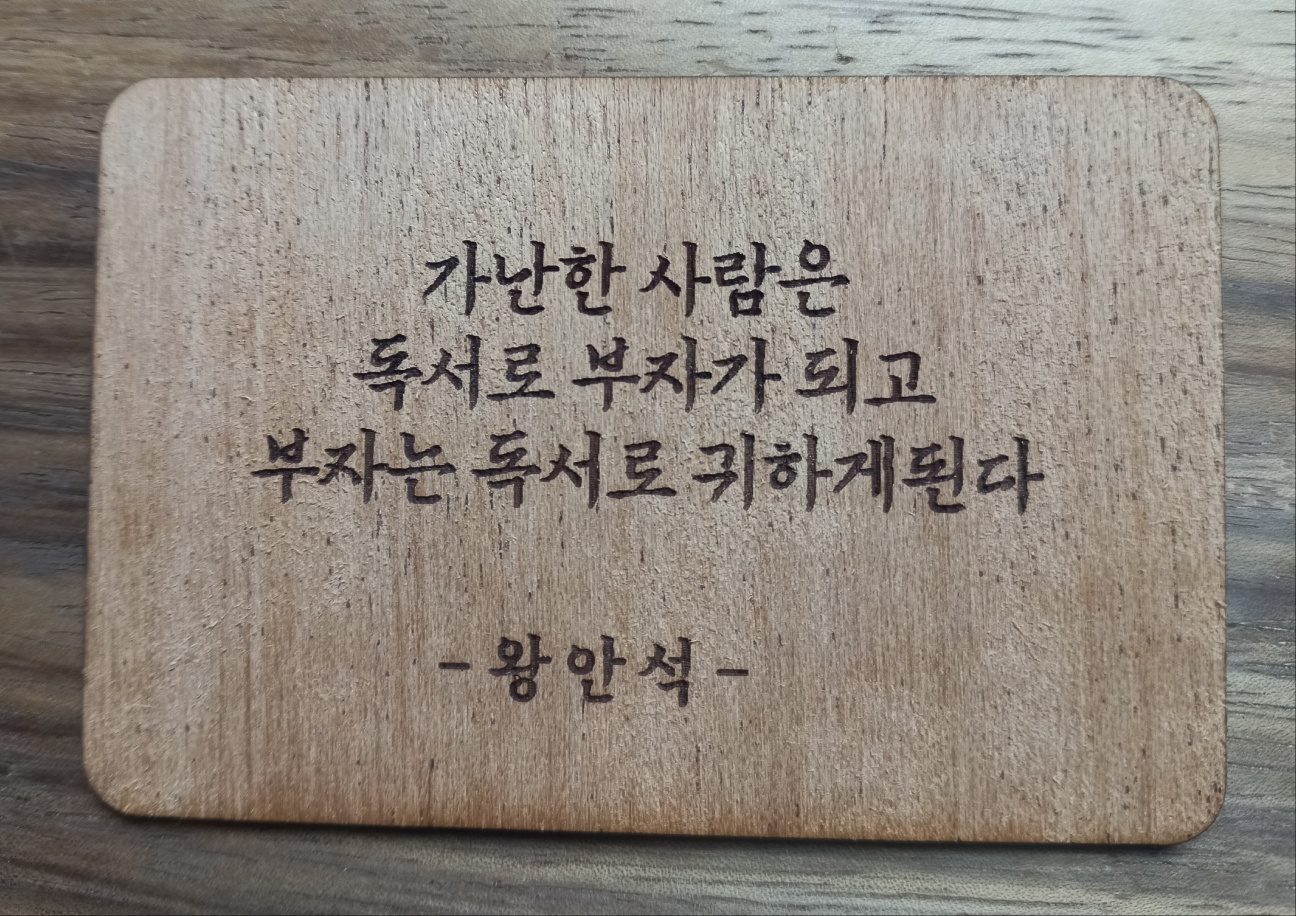 가난한 사람은
독서로 부자가 되고
부자는 독서로 귀하게된다
- 왕안석 -